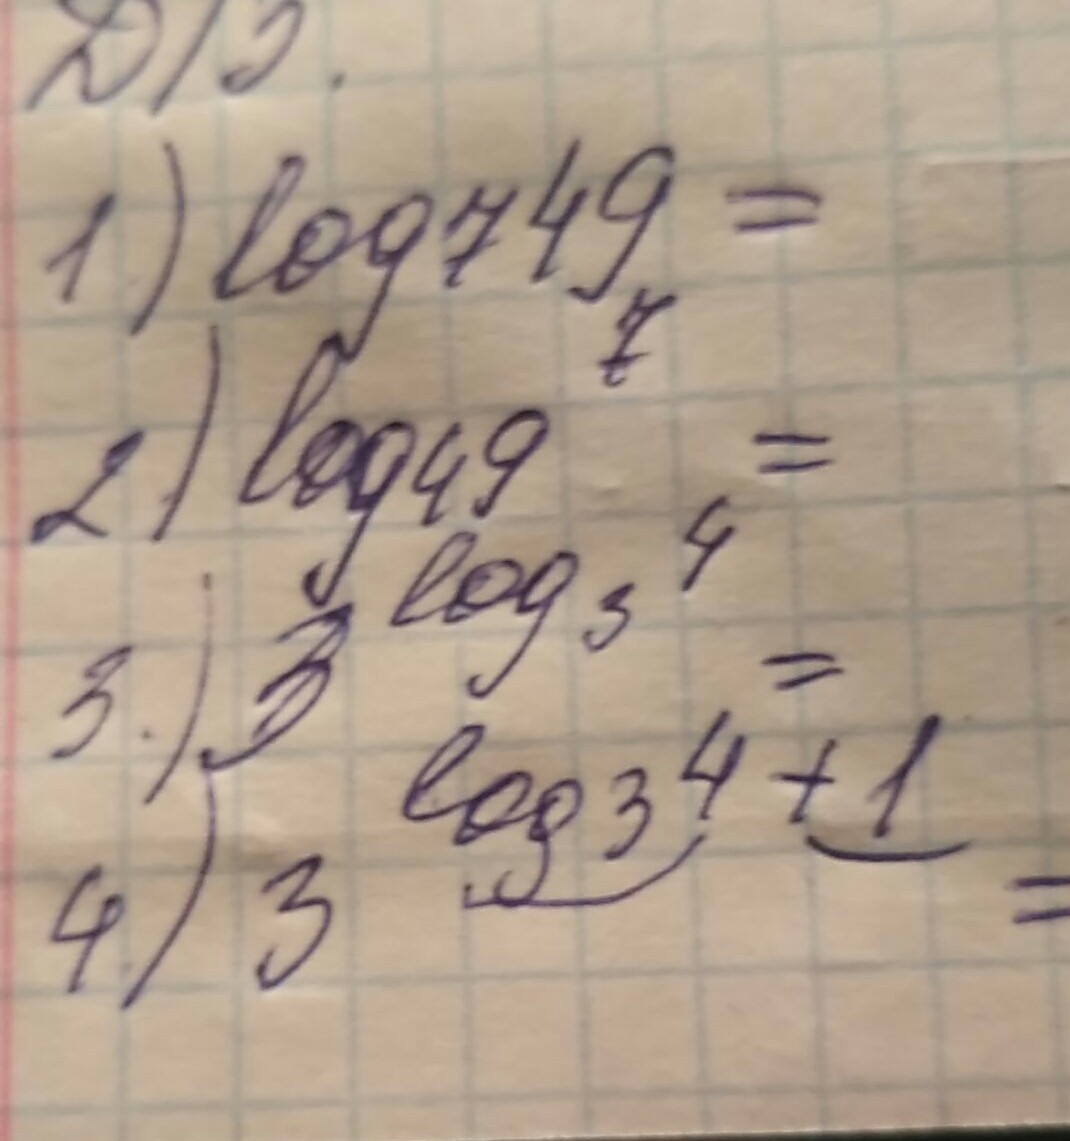 Д/З.
1) log₇49 =
2) log₄₉7 =
3.) 3^log₃4 =
4.) 3^log₃4 + 1 =